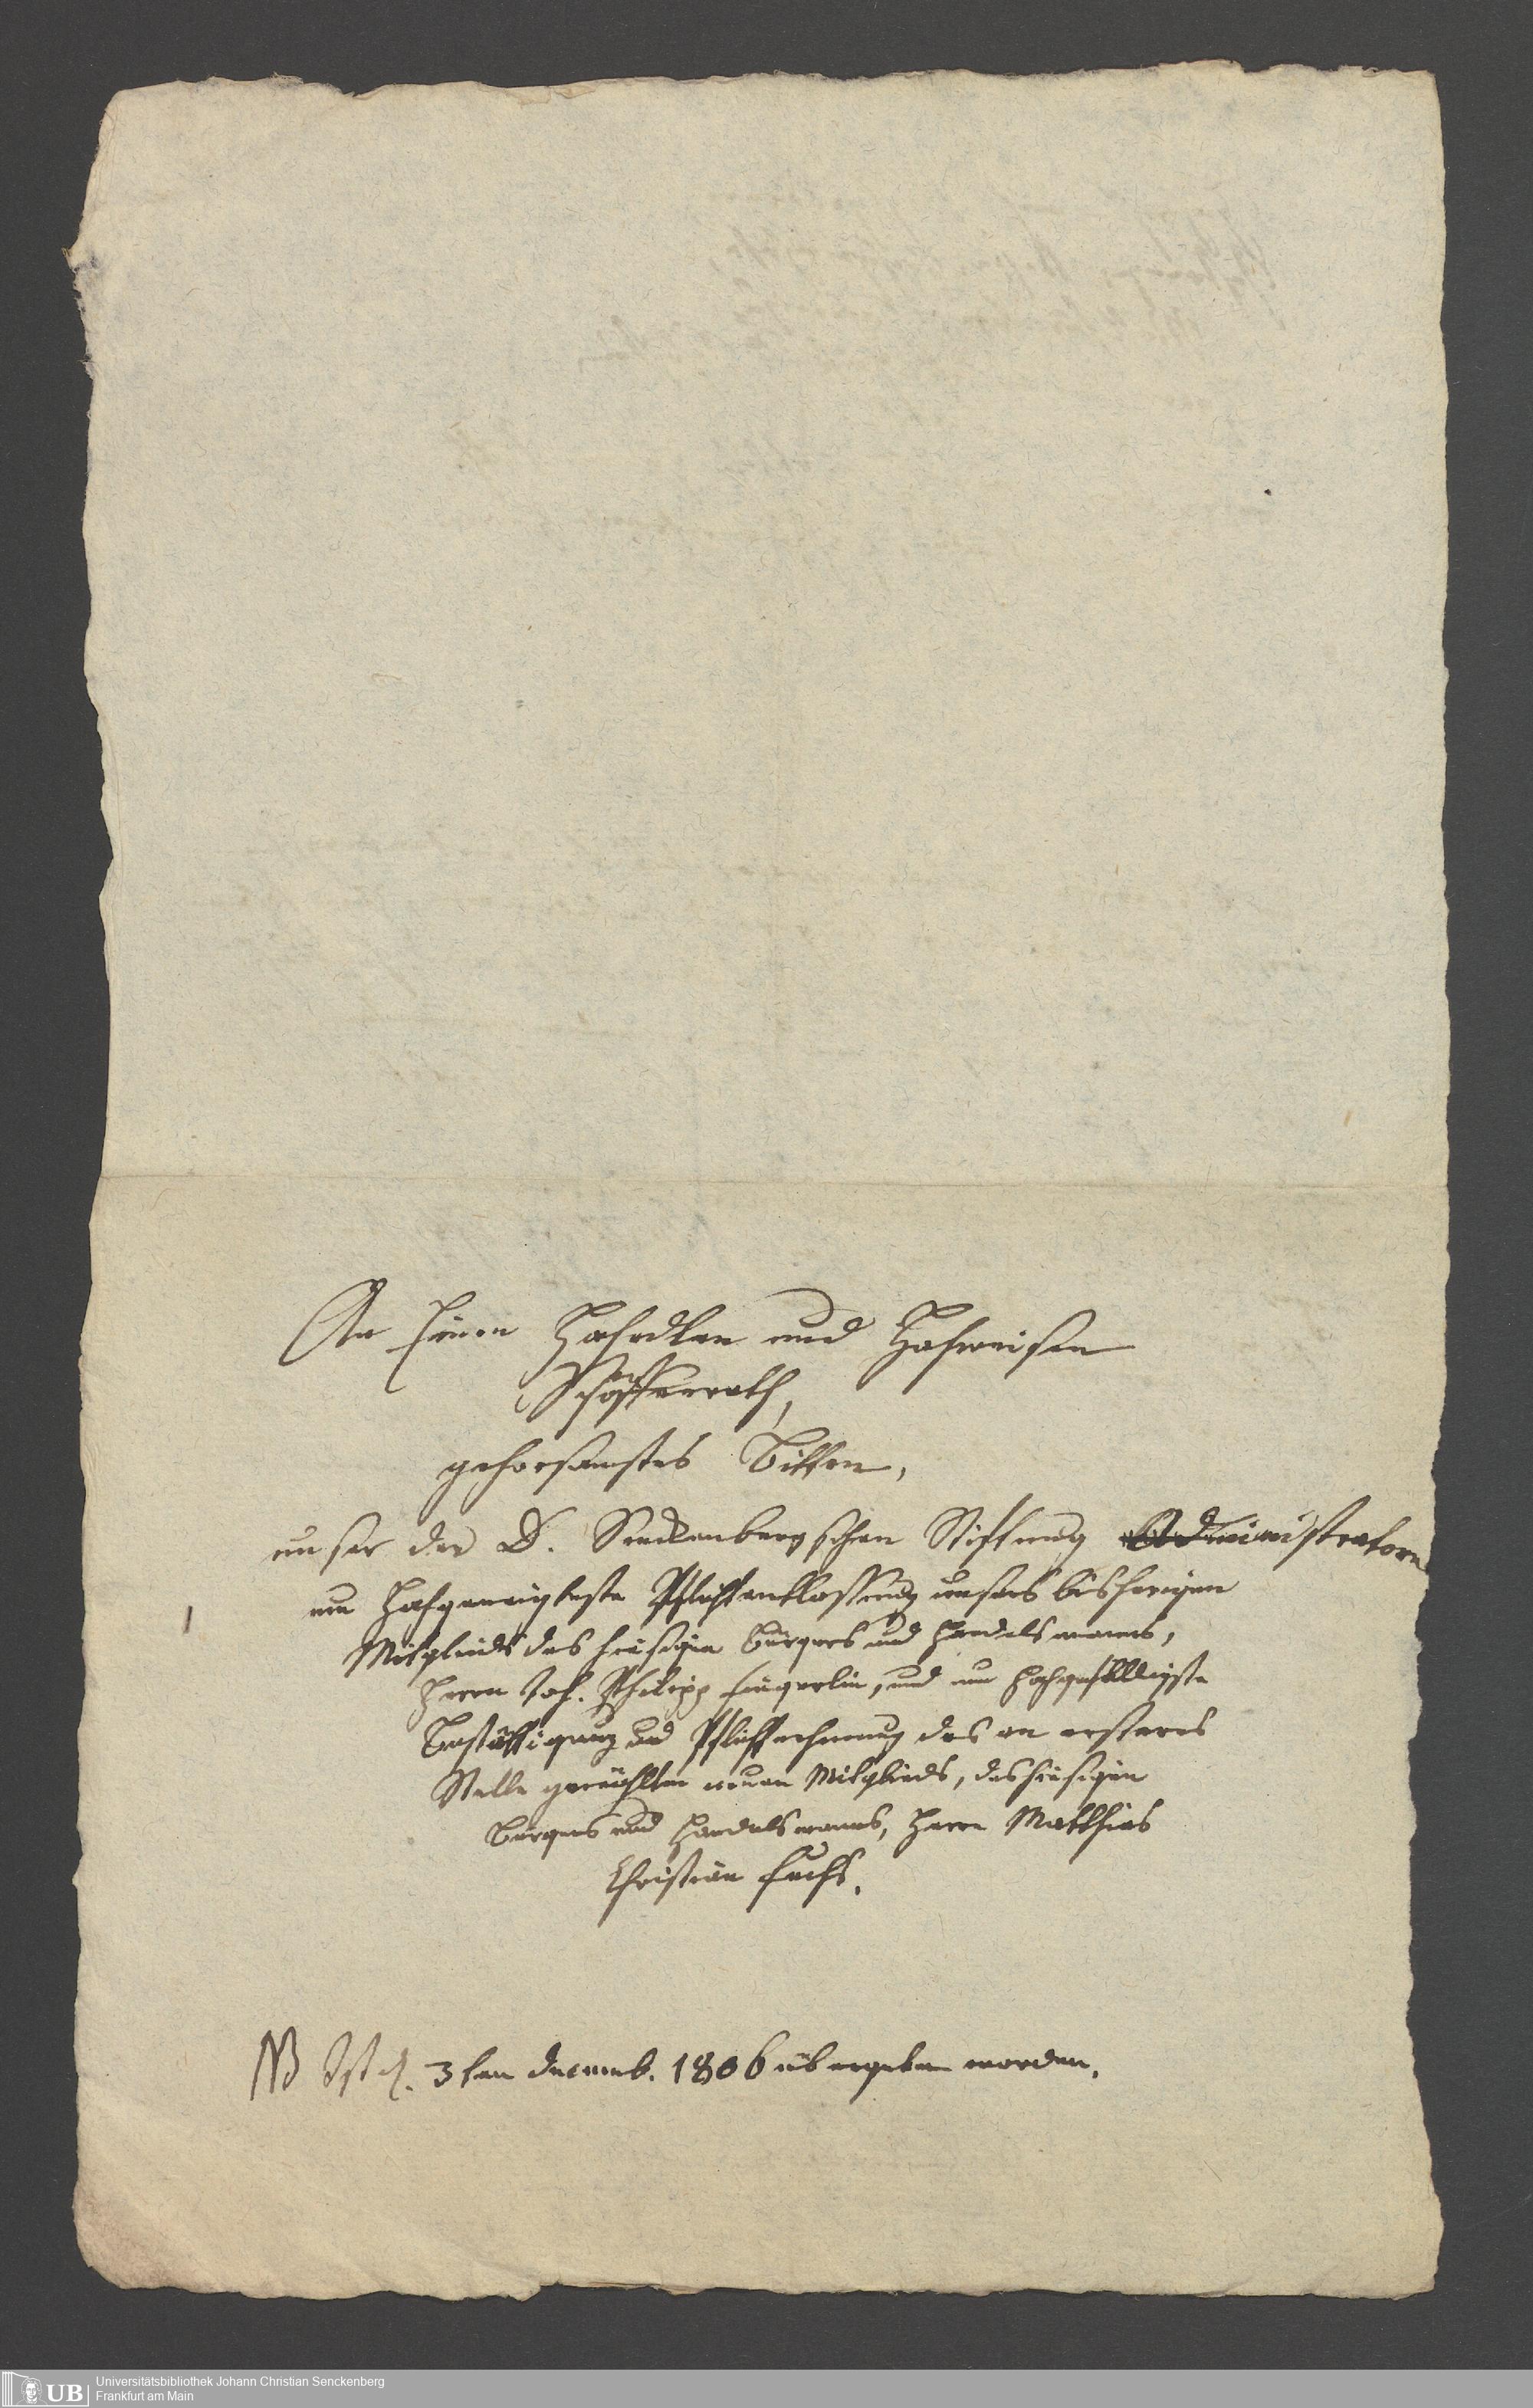 An Einen Hochedlen und Hochweisen
Schöffenrath,
gehorsamstes Bitten,
unser der D. Senckenbergschen Stiftung Administratorn
um Hochgeneigteste Pflichtentlassung unsers bisherigen
Mitglieds des hiesigen Bürgers und Handelsmanns,
Herrn Joh. Philipp Fingerlin, und um hochgefälligste
Bestättigung und Pflichtnehmung des an ersteres
Stelle gewählten neuen Mitglieds, des hiesigen
Bürgers und Handelsmanns, Herrn Matthias
Christian Fuchs.
NB Ist d. 3ten Decemb. 1806 übergeben worden.
UB
Universitätsbibliothek Johann Christian Senckenberg
Frankfurt am Main